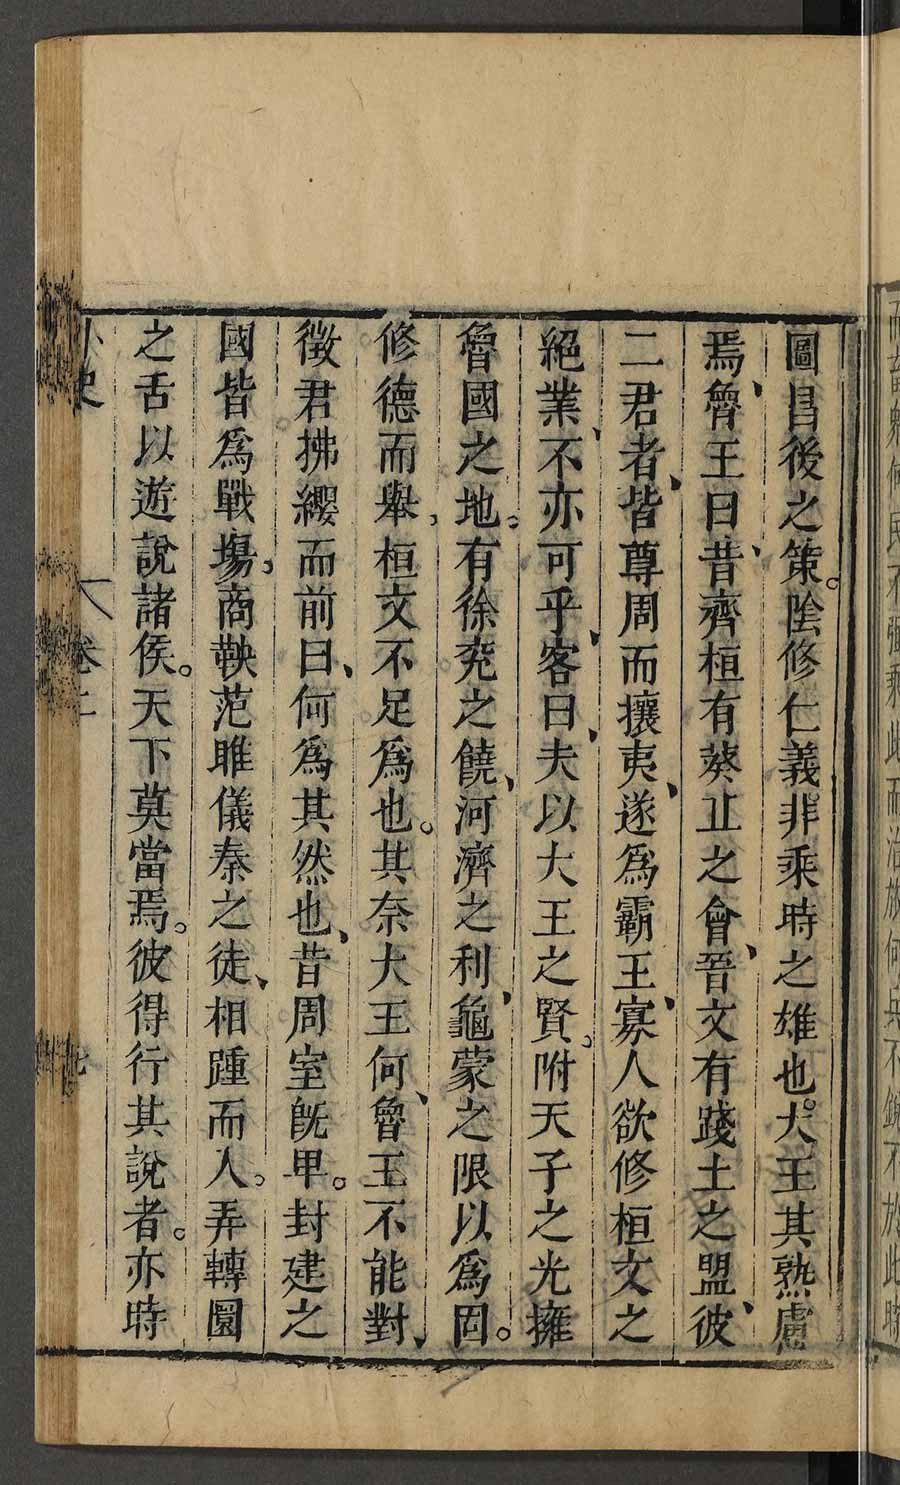 圖昌後之策。陰修仁義非乘時之雄也。大王其熟慮
焉、魯王曰、昔齊桓有葵丘之會、晉文有踐土之盟、彼
二君者、皆尊周而攘夷、遂爲霸王、寡人欲修桓文之
絕業、不亦可乎、客曰、夫以大王之賢。附天子之光擁
魯國之地。有徐兖之饒、河濟之利、龜蒙之限以爲固。
修德而舉、桓文不足爲也。其奈大王何、魯王不能對、
徵君拂纓而前曰、何爲其然也、昔周室旣卑。封建之
國皆爲戰塲、商鞅范雎儀秦之徒、相踵而入。弄轉圜
之舌以遊說諸侯。天下莫當焉。彼得行其說者。亦時
卷二